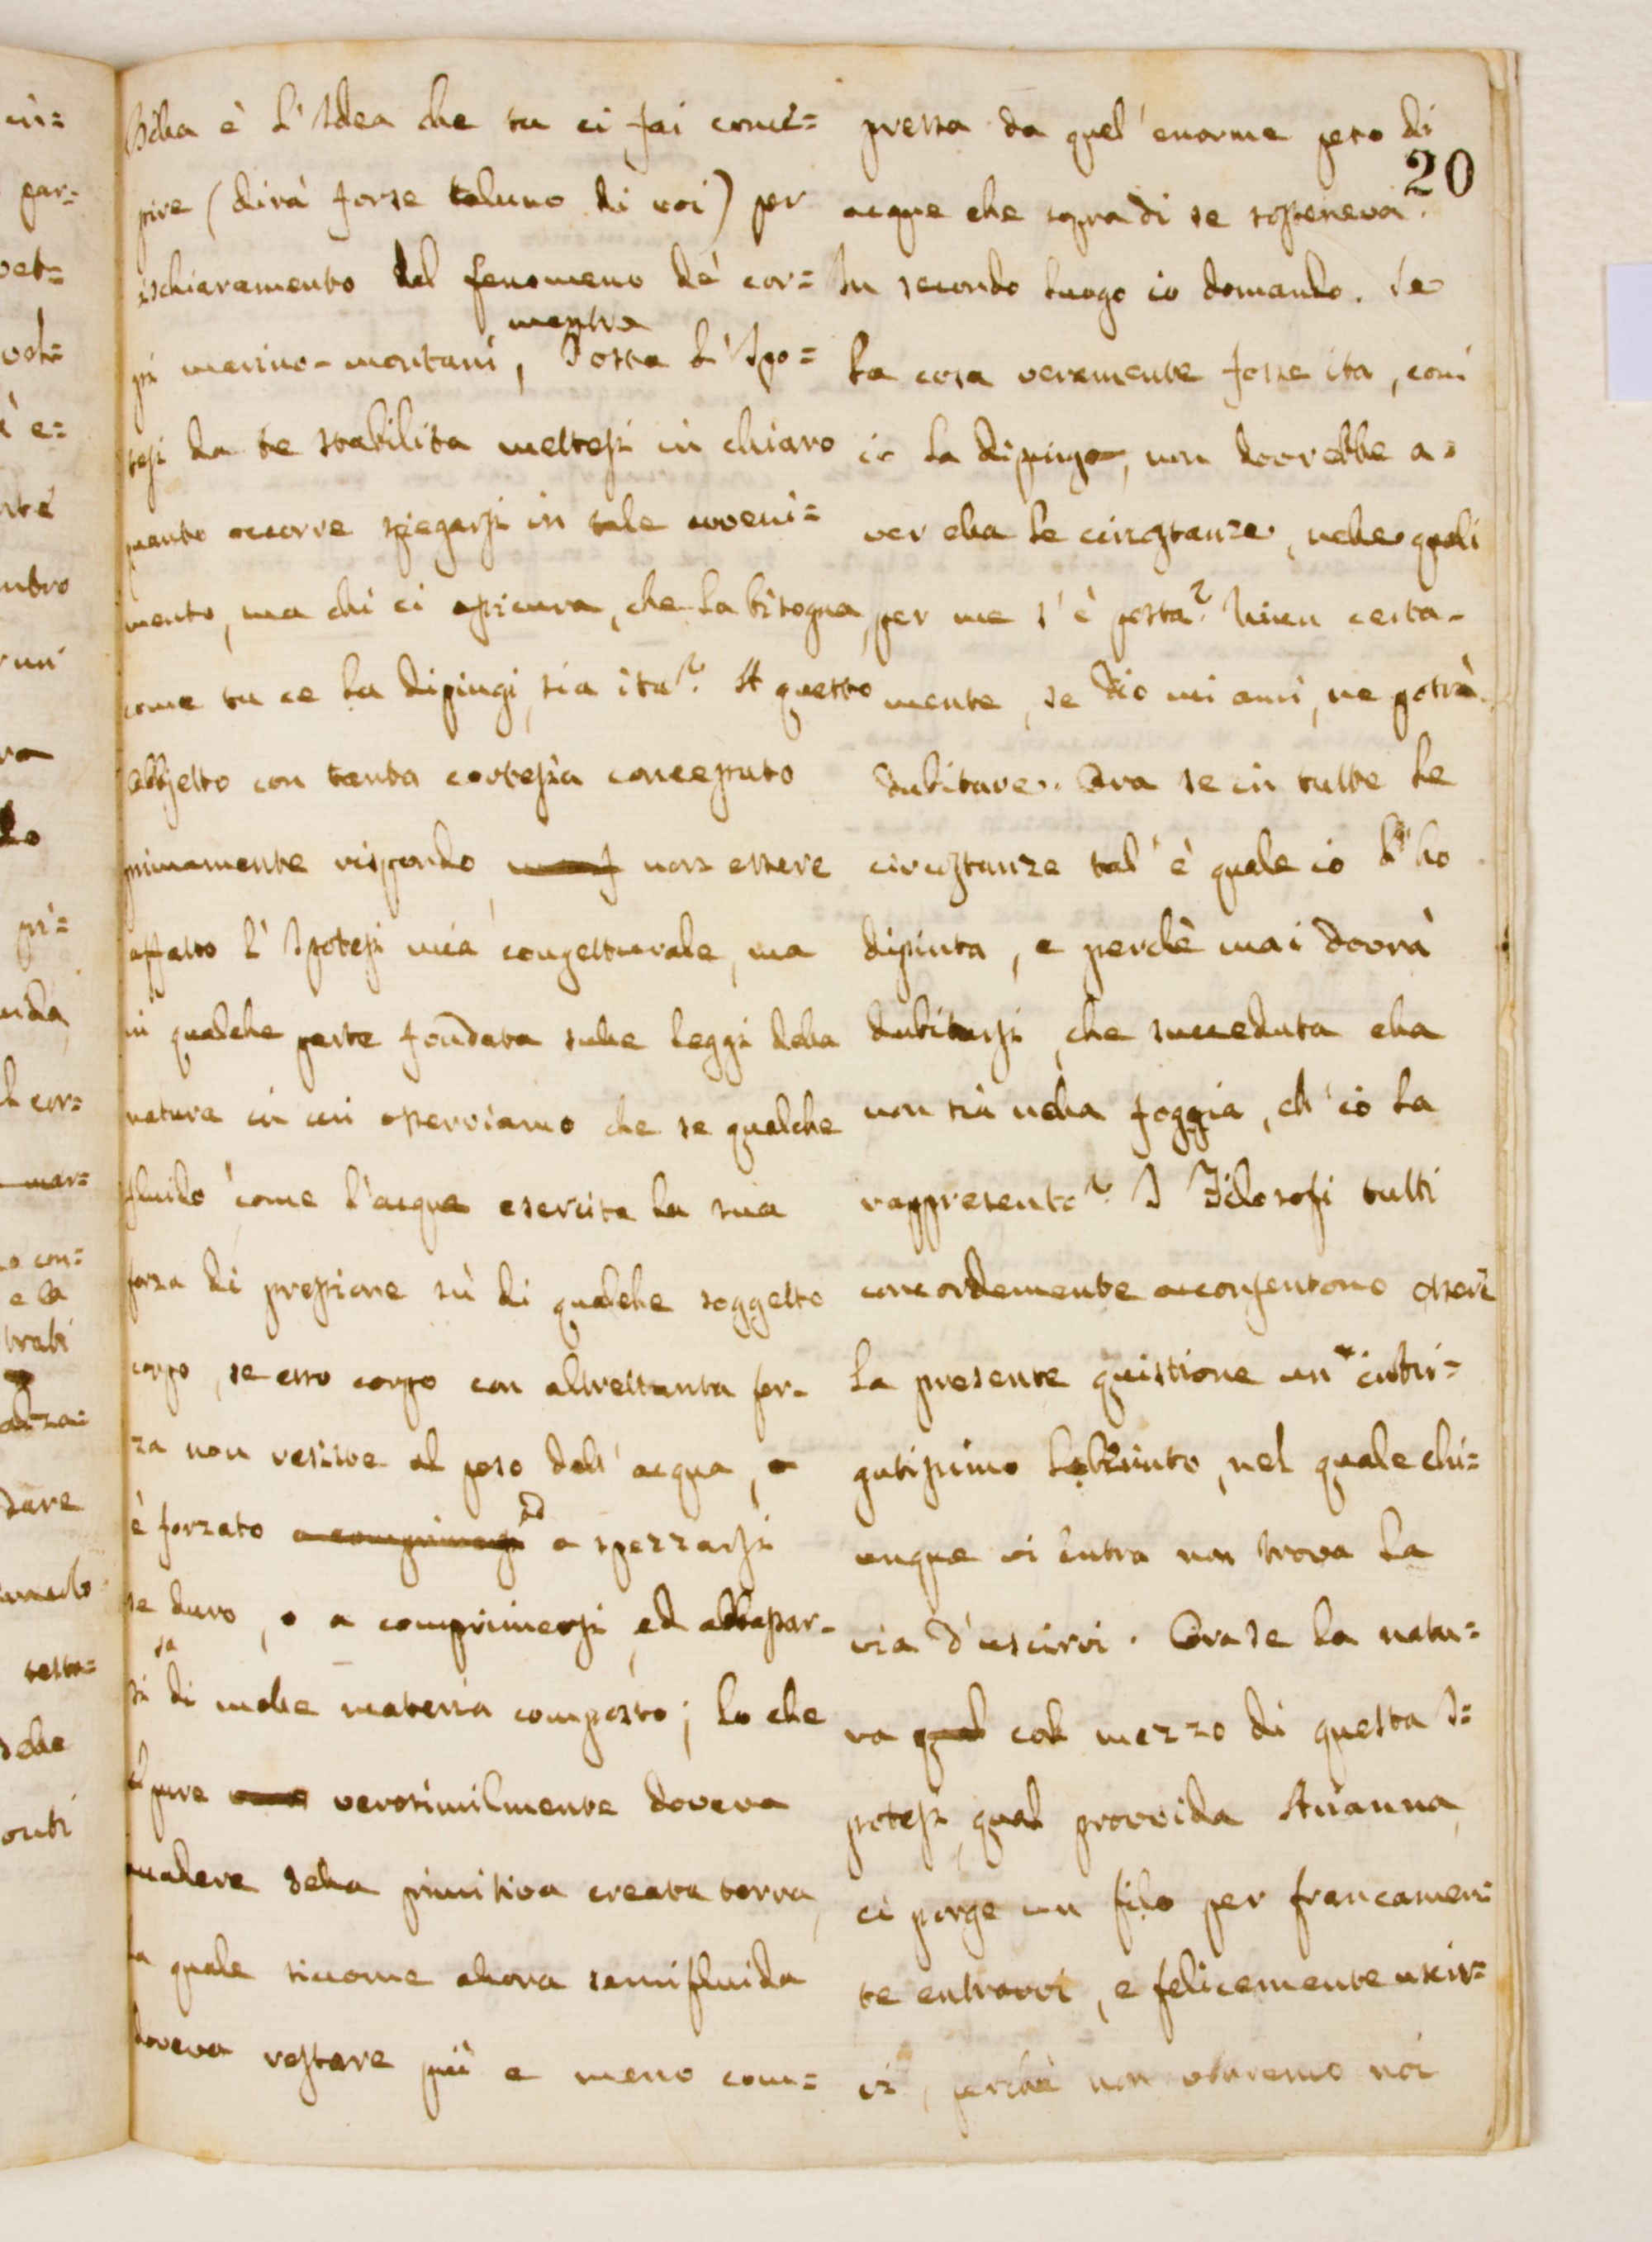 Bella è l'Idea che tu ci fai conce=
pire (dirà forse taluno di voi) per
ischiaramento del fenomeno de' cor=
pi marino-montani, mentre
Posta l'Ipo=
tesi da te stabilita mettesi in chiaro
quanto occorre spiegarsi in tale avveni=
mento, ma chi ci assicura, che la bisogna,
come tu ce la dipingi, sia ita? A questo
obbjetto con tanta cortesia conceputo
primamente rispondo, non essere
affatto l'Ipotesi mia congetturale, ma
in qualche parte fondata sulle leggi della
natura in cui osserviamo che se qualche
fluido come l'acqua esercita la sua
forza di pressione sù di qualche soggetto
corpo, se esso corpo con altrettanta for-
za non resiste al peso dell'acqua, o
è forzato a comprimersi od a spezzarsi
se duro, o a comprimersi, ed abbassar-
si sa di molle materia composto; lo che
pure verosimilmente doveva
accadere della primitiva creata terra,
la quale siccome allora semifluida
doveva restare più e meno com=
pressa da quel'enorme peso di
20
acque che sopra di se sosteneva.
In secondo luogo io domando. Se
la cosa veramente fosse ita, com'
io la dipingo, non dovrebbe a=
ver ella le circostanze, nelle quali
per me s'è posta? Niun certa-
mente, se Dio mi ami, ne potrà
dubitare. Ora se in tutte le
circostanze tal'è quale io l'ho
dipinta, e perchè mai dovrà
dubitarsi, che succeduta ella
non sia nella foggia, ch'io la
rappresento? I Filosofi tutti
concordemente acconsentono esser
la presente quistione un intri=
gatissimo laberinto, nel quale chi=
unque vi entra non trova la
via d'uscirvi. Ora se la natu=
ra qual col mezzo di questa I=
potesi, qual provvida Arianna,
ci porge un filo per francamen=
te entrarvi, e felicemente uscir=
vi, perchè non vorremo noi